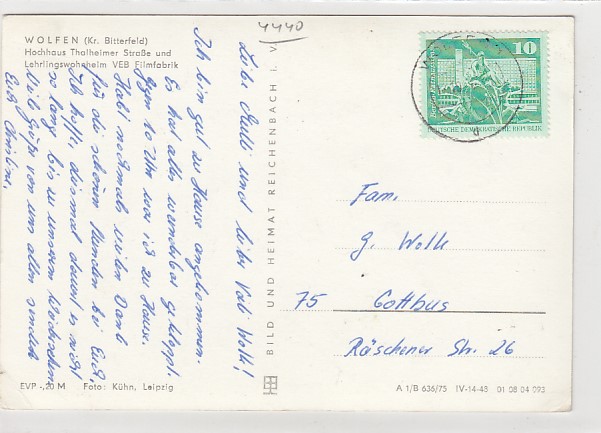 4440
WOLFEN (Kr. Bitterfeld)
Hochhaus Thalheimer Straße und
Lehrlingswohnheim VEB Filmfabrik
Liebe Mutti und lieber Vati Wolk!
Ich bin gut zu Hause angekommen.
Es hat alles wunderbar geklappt.
Gegen 10 Uhr war ich zu Hause.
Habt nochmals vielen Dank
für die schönen Stunden bei Euch.
Ich hoffe, diesmal dauert es nicht
so lange bis zu unserem Wiedersehen
Viele Grüße von uns allen sendet
Eure
BILD UND HEIMAT REICHENBACH I. V.
10
DEUTSCHE DEMOKRATISCHE REPUBLIK
Fam.
G. Wolk
75 Cottbus
Räschener Str. 26
EVP -,20 M Foto: Kühn, Leipzig
A 1/B 636/75 IV-14-48 01 08 04 093